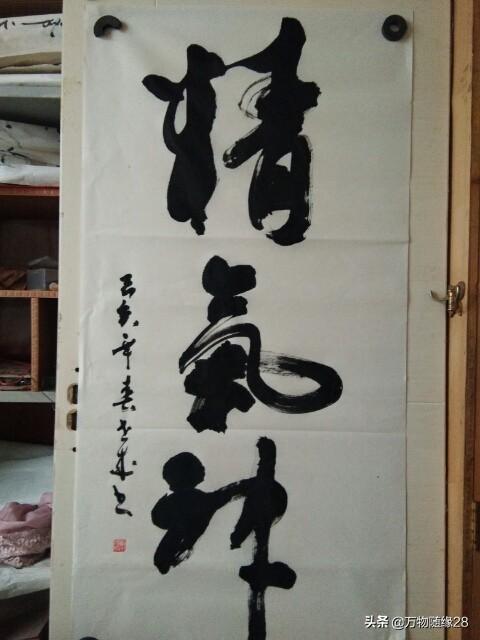 精氣神
己亥年春书
头条 @万物随缘28